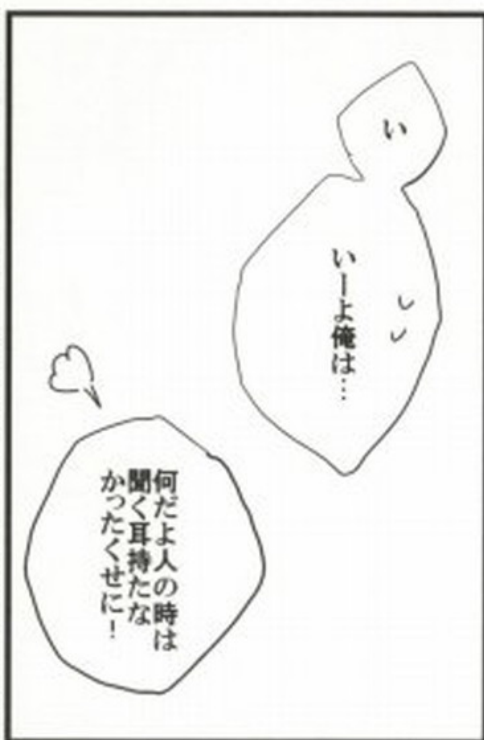 い
いーよ俺は…
何だよ人の時は
聞く耳持たな
かったくせに！